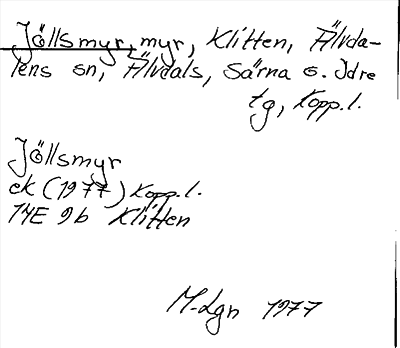 Jöllsmyr, myr, Klitten, Älvda-
lens sn, Älvdals, Särna o. Idre
tg, Kopp.l.
Jöllsmyr
ek (1977) Kopp.l.
14E 9b Klitten
M-Lgn 1977